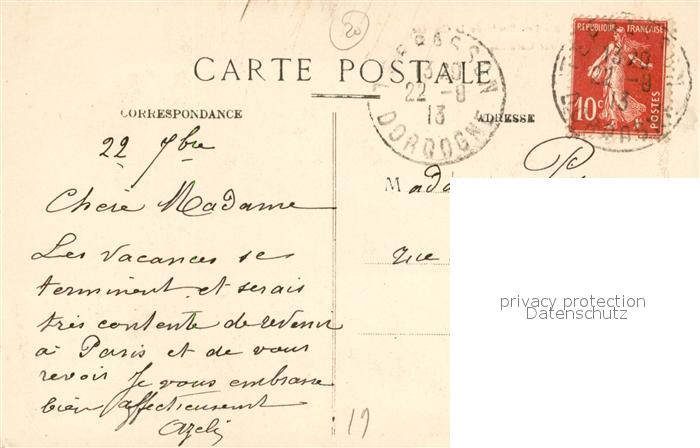 20
CARTE POSTALE
CORRESPONDANCE
ADRESSE
RÉPUBLIQUE FRANÇAISE
10c
POSTES
13 30
22 - 9
13
DORDOGNE
22 7bre
Chère Madame
Les vacances se
terminent et serais
très contente de revenir
à Paris et de vous
revoir Je vous embrasse
bien affectueusement
Mad
rue
19
privacy protection
Datenschutz